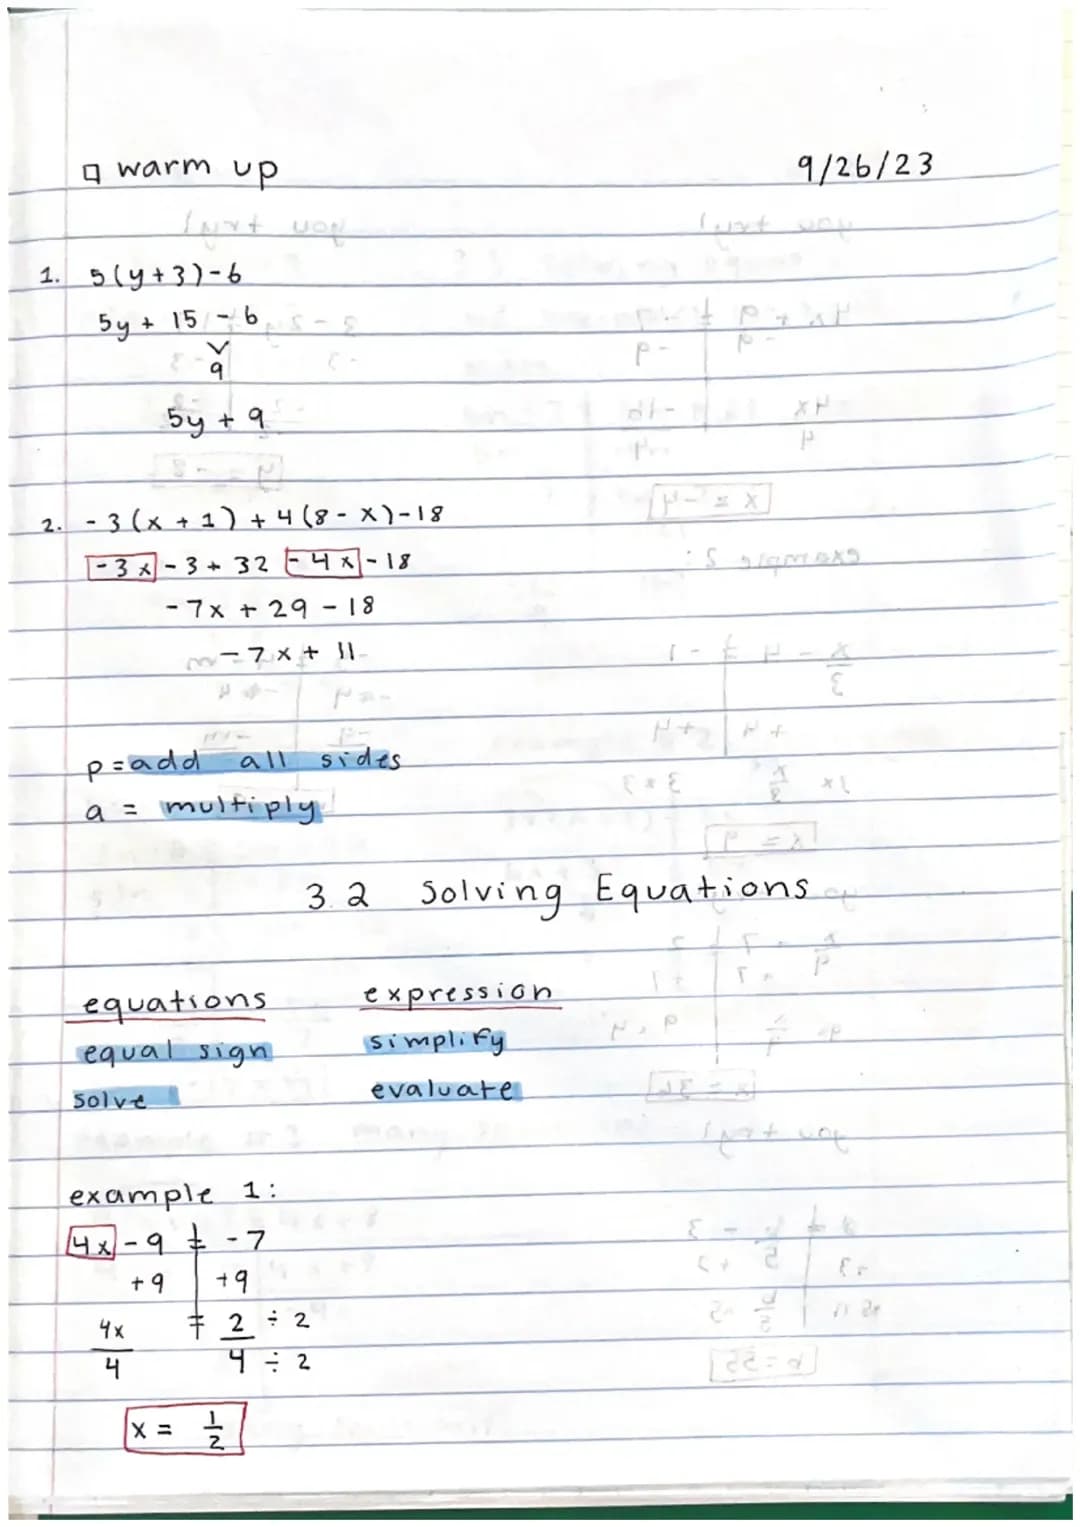 warm up 9/26/23
1. 5(y+3)-6
5y + 15 - 6
9
5y + 9
2. -3(x + 1) + 4(8 - x)-18
-3x - 3 + 32 - 4x - 18
-7x + 29 - 18
-7x + 11
p = add all sides
a = multiply
3.2 Solving Equations
equations expression
equal sign simplify
solve evaluate
example 1:
4x - 9 = -7
+9 +9
4x = 2 ÷ 2
4 4 ÷ 2
x = 1/2